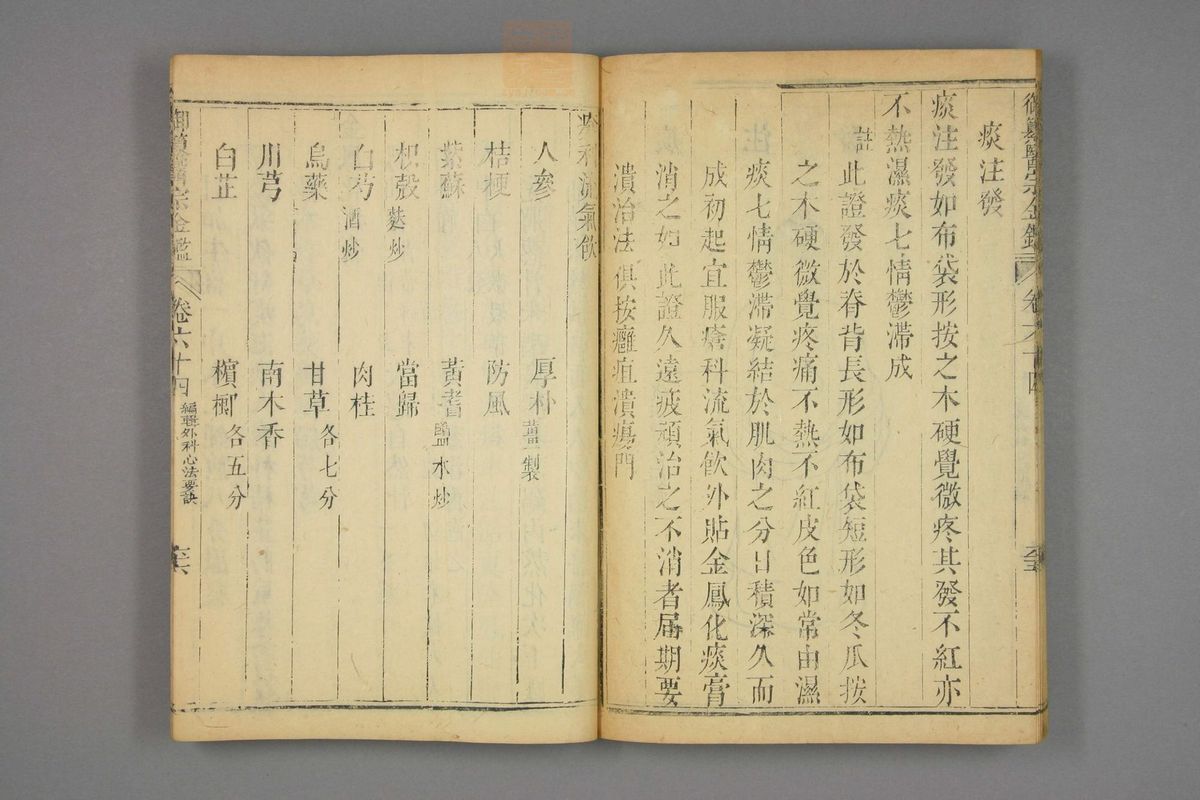 御纂醫宗金鑑 卷六十四
痰注發
痰注發如布袋形按之木硬覺微疼其發不紅亦
不熱濕痰七情鬱滯成
註此證發於脊背長形如布袋短形如冬瓜按
之木硬微覺疼痛不熱不紅皮色如常由濕
痰七情鬱滯凝結於肌肉之分日積深久而
成初起宜服瘡科流氣飲外貼金鳳化痰膏
消之如此證久遠疲頑治之不消者届期要
潰治法俱按癰疽潰瘍門
瘡科流氣飲
人參 厚朴薑製
桔梗 防風
紫蘇 黃耆鹽水炒
枳殼麩炒 當歸
白芍酒炒 肉桂
烏藥 甘草各七分
川芎 南木香
白芷 檳榔各五分
御纂醫宗金鑑 卷六十四 編輯外科心法要訣